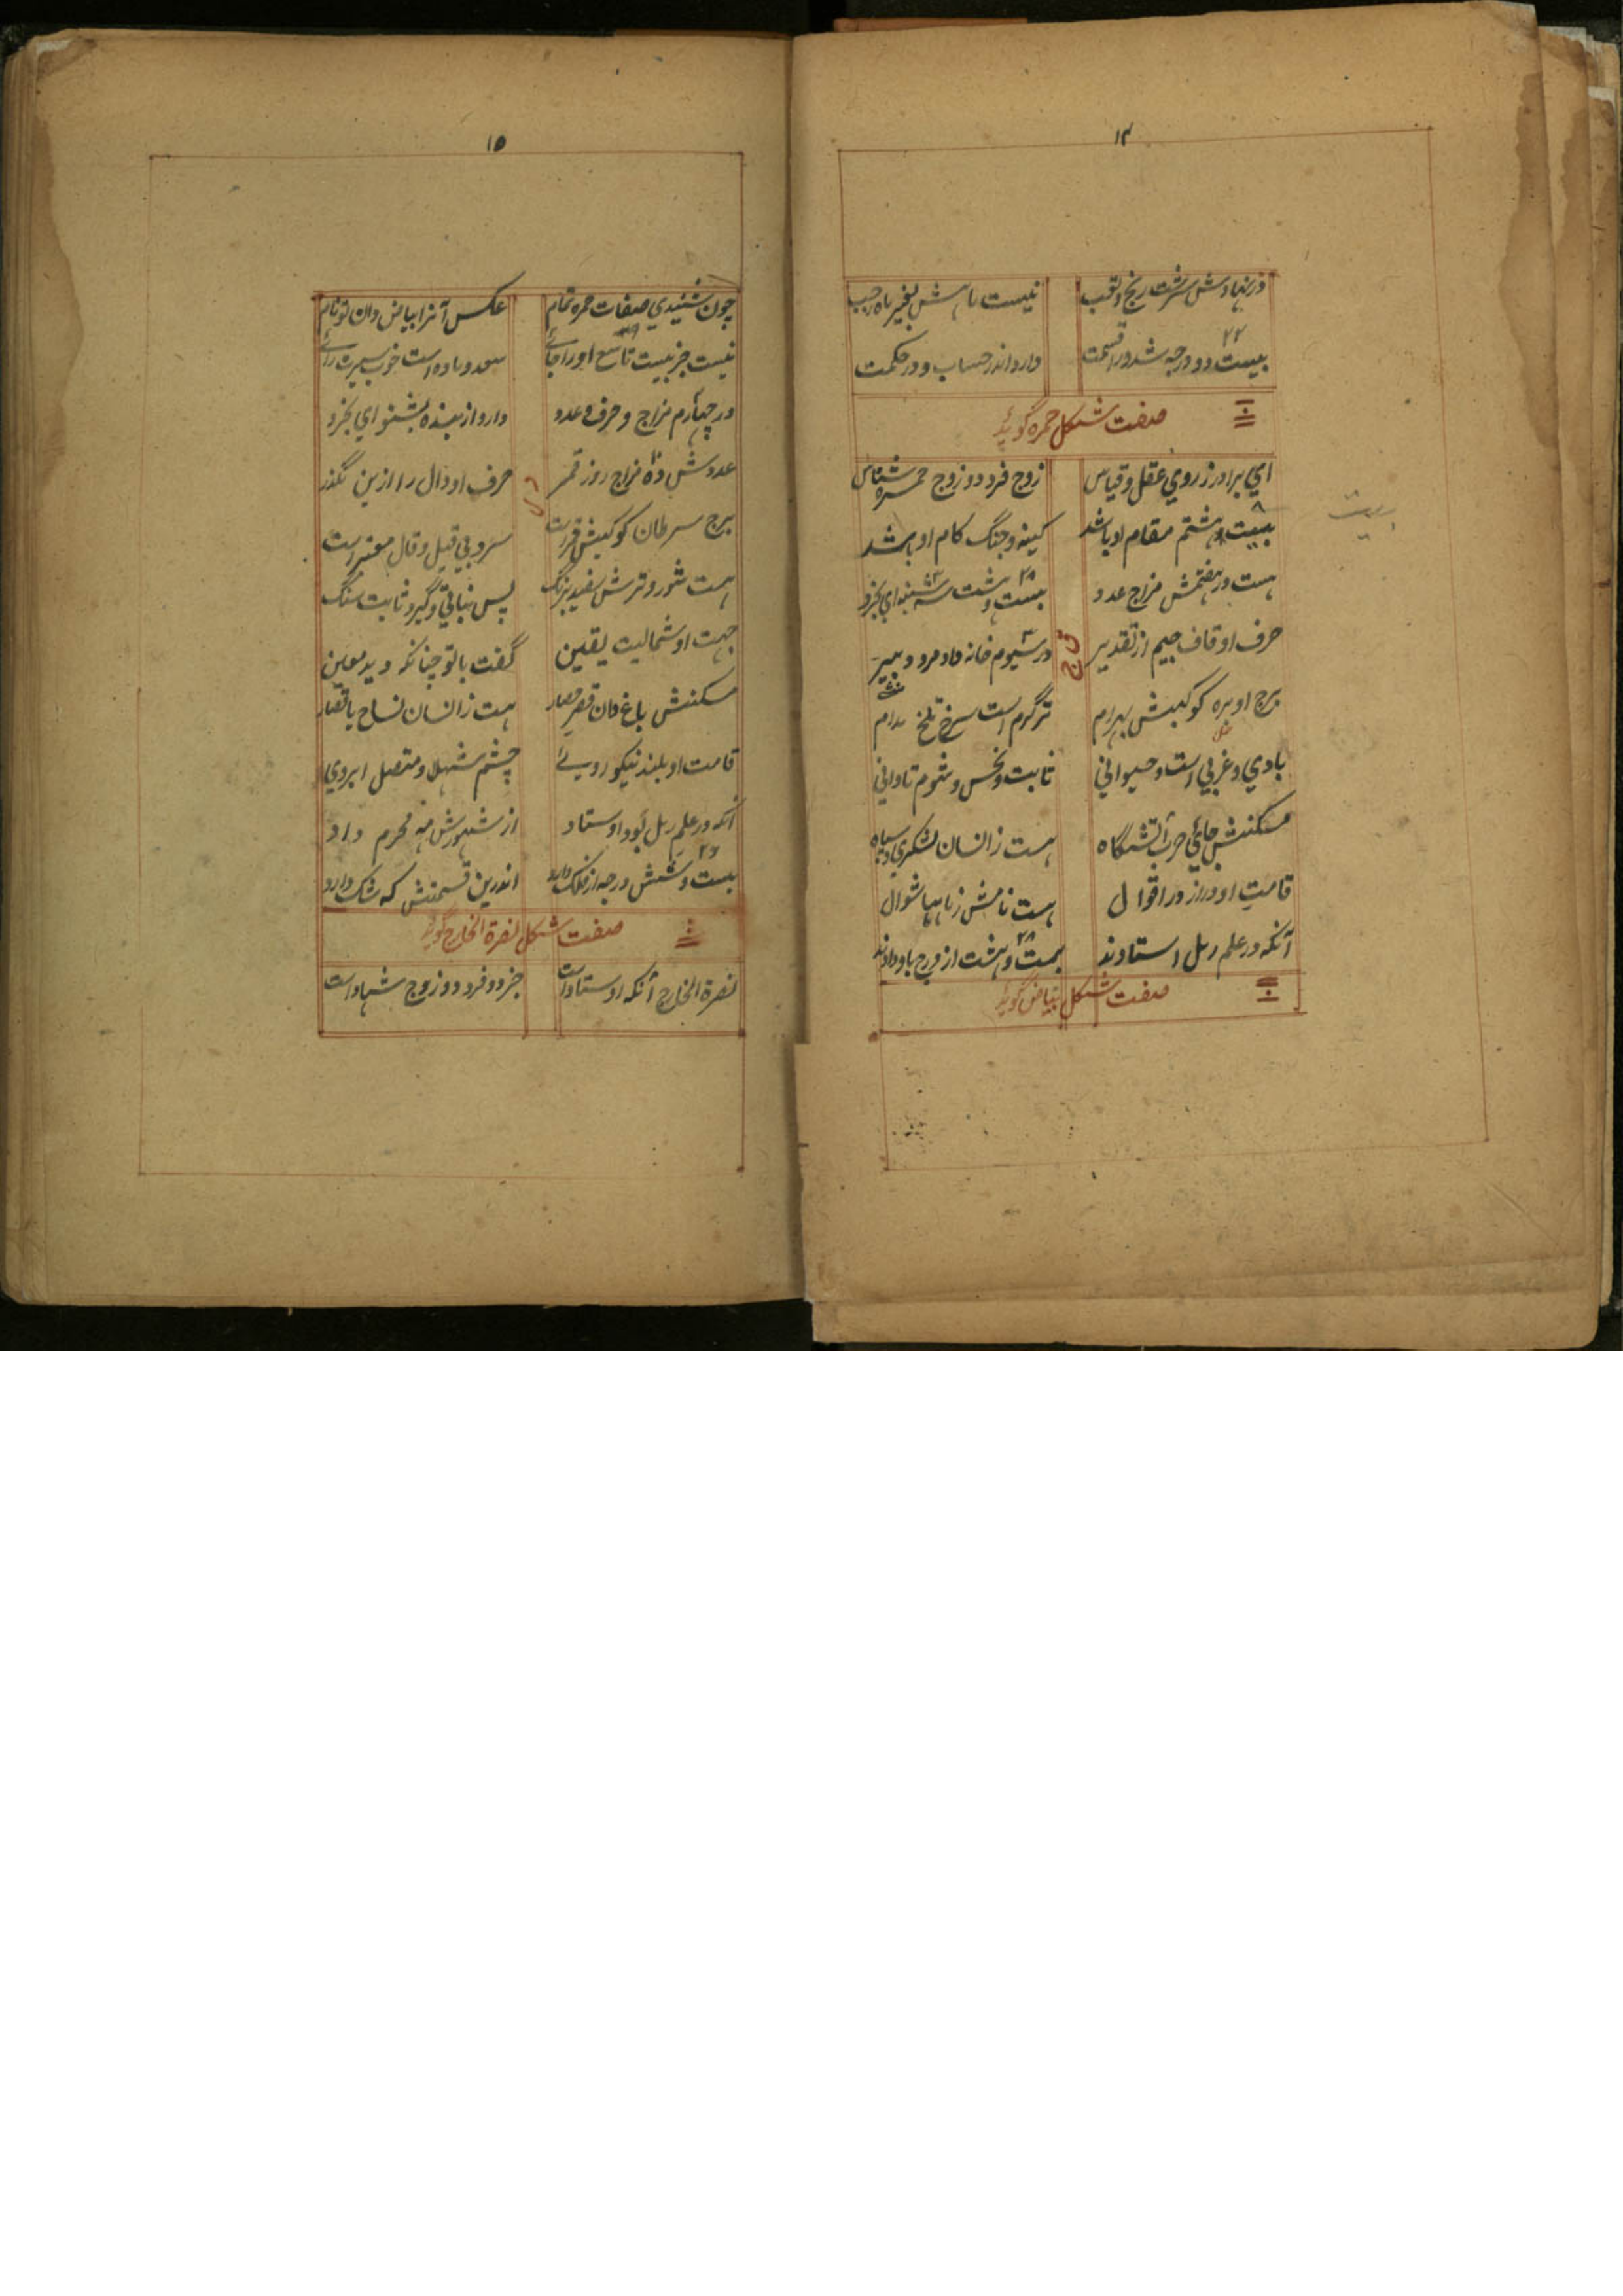 ۱۴
در نهادش سرشت رنج و تعب نیست ماهش بغیر ماه رجب
۲۲
بیست دو درجه شد ورا قسمت دارد اندر حساب و در حکمت
صفت شکل حمره گوید
ای برادر ز روی عقل و قیاس زوج فرد دو زوج حمره شناس
بیست و هشتم مقام او باشد کینه و جنگ کام او باشد
هست در هفتمش مزاج عدد بیست و هشت سه شنبه ای بخرد
حرف او قاف جیم از تقدیر در سیوم خانه داد مرد دبیر
ق ج
برج او بره کوکبش بهرام تر گرم است سرخ تلخ مدام
بادی و غربی است و حیوانی ثابت و نحس و شوم تا دانی
مسکنش جای حرب آتشگاه هست ز انسان لشکری و سپاه
قامت او دراز در اقوال هست نامش ز ماهها شوال
۲۸
آنکه در علم رمل استادند بیست و هشت از درج باو دادند
صفت شکل بیاض گوید
۱۵
چون شنیدی صفات حمره تمام عکس آنرا بیاض دان تو نام
نیست جز بیت تاسع او را جای سعد و ماده است خوب سیرت رای
در چهارم مزاج و حرف و عدد دارد از بنده بشنو ای بخرد
عددش ده مزاج روز قمر حرف او دال را ازین نگذر
برج سرطان کوکبش قمر است سرد بی قیل و قال معتبر است
هست شور و ترش سفید برنگ پس نباتی و گیر ثابت سنگ
جهت او شمالیت یقین گفت با تو چنانکه دید معین
مسکنش باغ دان قصر حصار هست ز انسان نساج یا قصار
قامت او بلند نیکو روی چشم شهلا و متصل ابروی
آنکه در علم رمل بود اوستاد از شهورش مه محرم داد
۲۶
بیست و شش درجه از فلک دارد اندرین قسمتش که شک دارد
صفت شکل نصرة الخارج گوید
نصرة الخارج آنکه اوستاد است جز دو فرد دو زوج ننهاد است